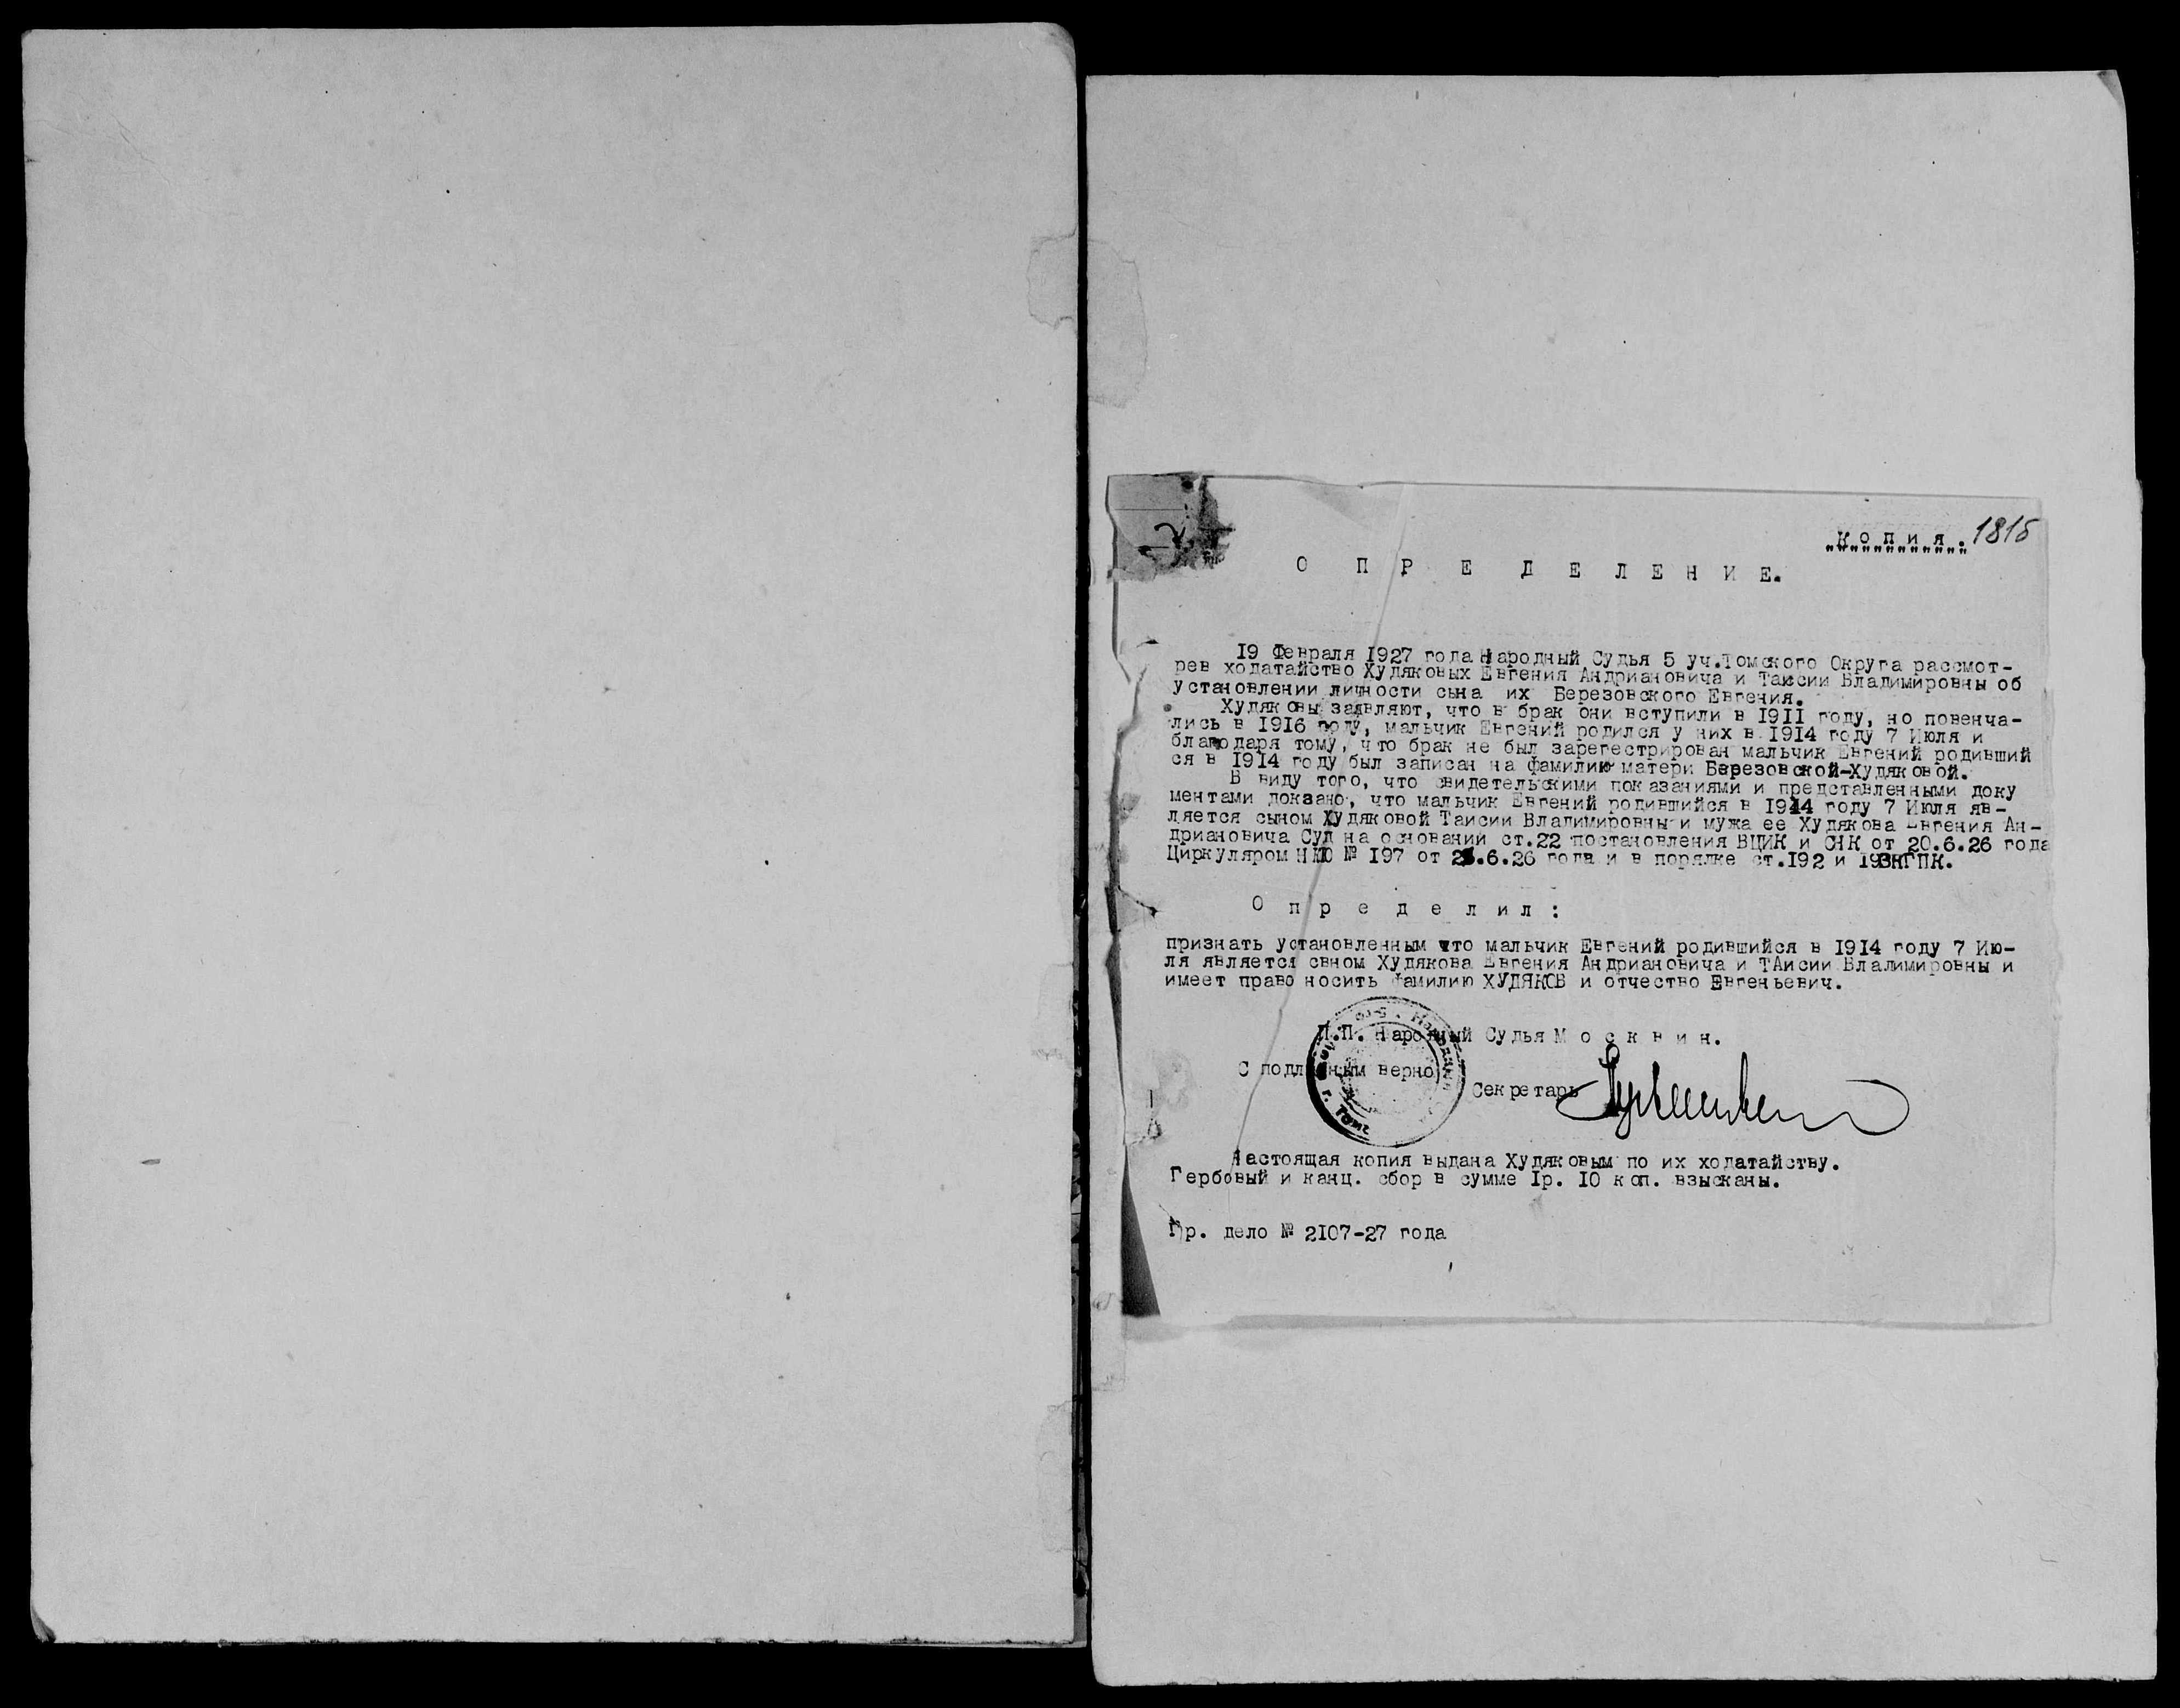 копия. 1815
О П Р Е Д Е Л Е Н И Е.
19 Февраля 1927 года Народный Судья 5 уч.Томского Округа рассмот-
рев ходатайство Худяковых Евгения Андриановича и Таисии Владимировны об
установлении личности сына их Березовского Евгения.
Худяковы заявляют, что в брак они вступили в 1911 году, но повенча-
лись в 1916 году, мальчик Евгений родился у них в 1914 году 7 Июля и
благодаря тому, что брак не был зарегестрирован мальчик Евгений родивший
ся в 1914 году был записан на фамилию матери Березовской-Худяковой.
В виду того, что свидетельскими показаниями и представленными доку
ментами доказано, что мальчик Евгений родившийся в 1914 году 7 Июля яв-
ляется сыном Худяковой Таисии Владимировны и мужа ее Худякова Евгения Ан-
дриановича Суд на основании ст.22 постановления ВЦИК и СНК от 20.6.26 года
Циркуляром НКЮ № 197 от .6.26 года и в порядке ст.192 и 193 ГПК.
О п р е д е л и л :
признать установленным что мальчик Евгений родившийся в 1914 году 7 Ию-
ля является свном Худякова Евгения Андриановича и ТАисии Владимировны и
имеет право носить фамилию ХУДЯКОВ и отчество Евгеньевич.
П.П. Народный Судья М о с к в и н.
С подлинным верно
Секретарь
Настоящая копия выдана Худяковым по их ходатайству.
Гербовый и канц. сбор в сумме 1р. 10 коп. взысканы.
Гр. дело № 2107-27 года